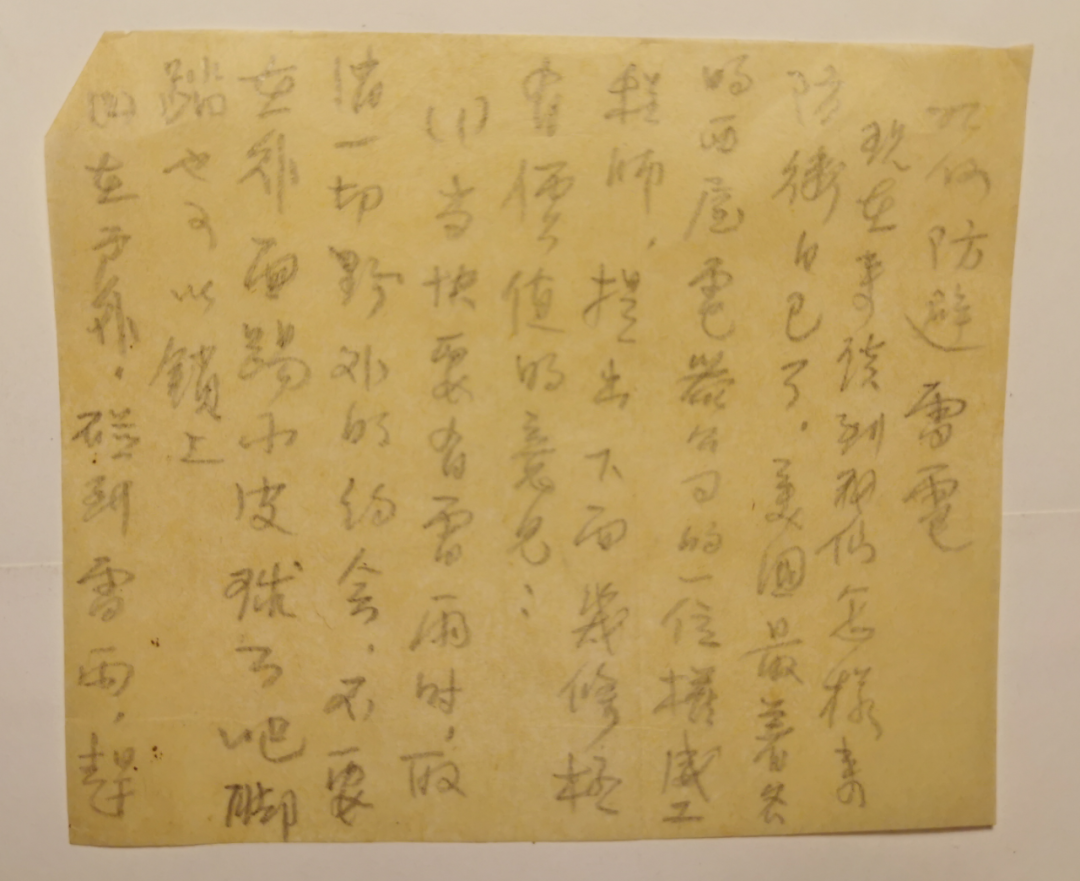 如何防避雷電
現在要談到我們怎樣來
防衛自己了。美国最著名
的西屋電器公司的一位權威工
程師，提出下面幾條極
有價值的意見：
(1)当快要有雷雨时，取
消一切野外的約会，不要
在外面踢小皮球了吧脚
踏也可以鎖上
如在予算，碰到雷雨，趕